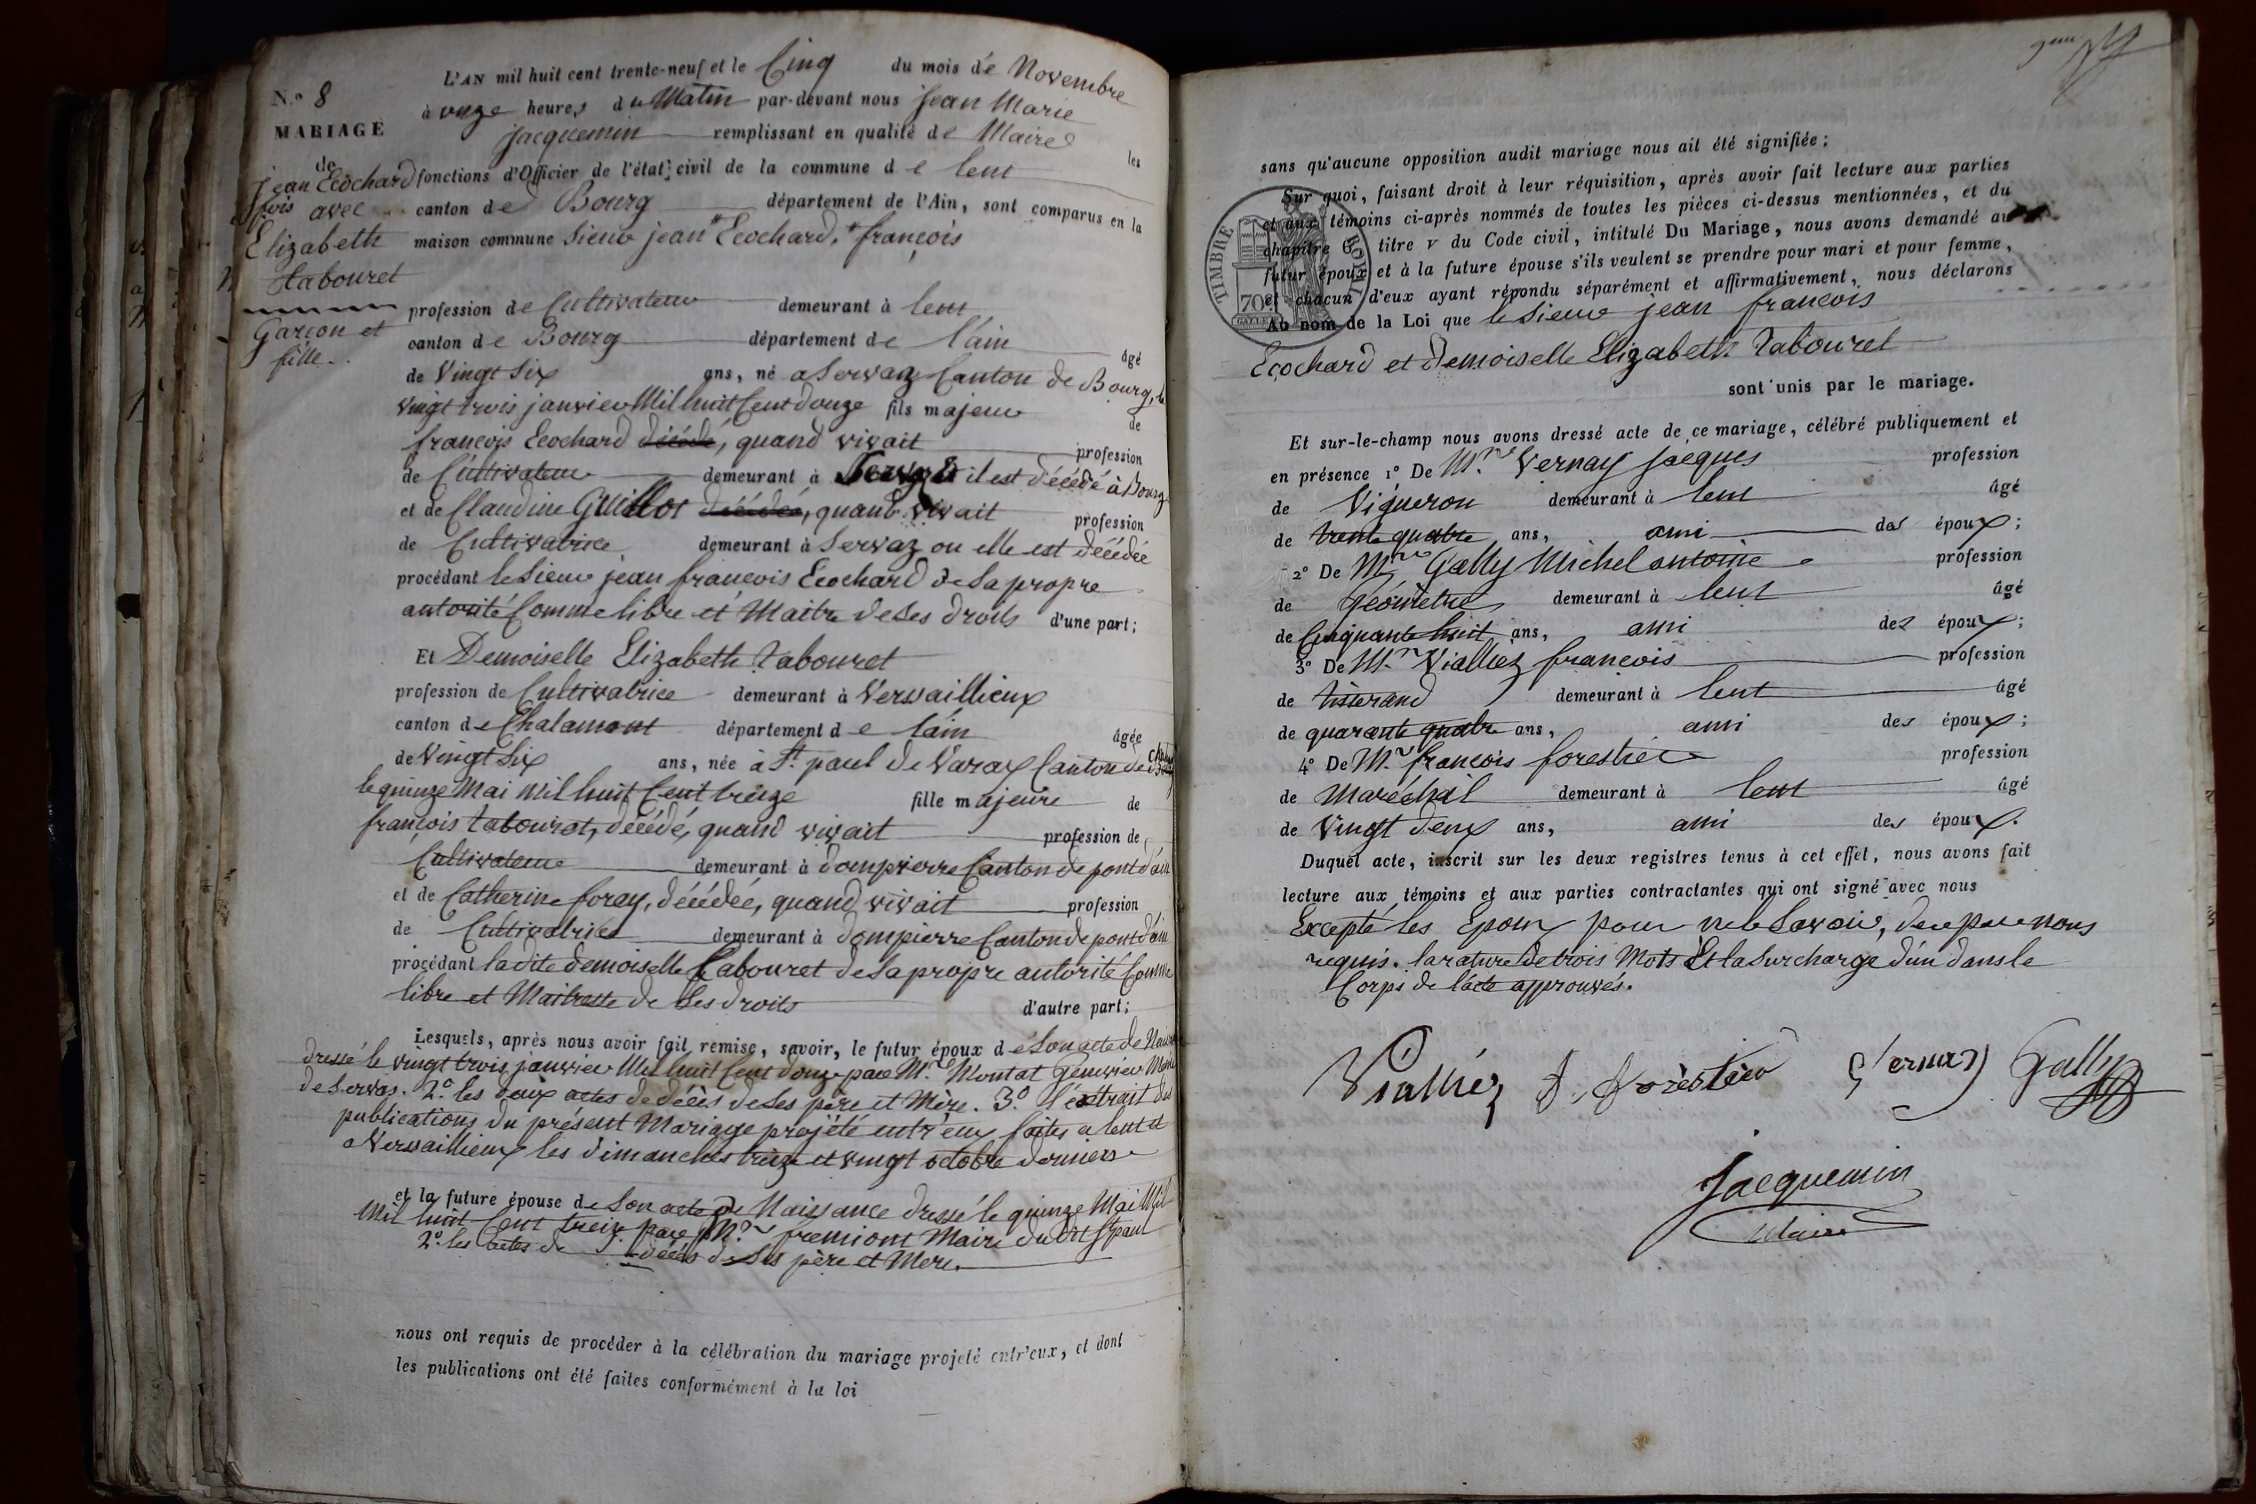 N.° 8
MARIAGE
de
jean Ecochard
fois avec
Elizabeth
tabouret
Garçon et
fille.
L'AN mil huit cent trente-neuf et le Cinq du mois de Novembre
à onze heures du Matin par-devant nous Jean Marie
Jacquemin remplissant en qualité de Maire les
fonctions d'Officier de l'état civil de la commune de lent
canton de Bourg département de l'Ain, sont comparus en la
maison commune Sieur jean Ecochard, françois
profession de Cultivateur demeurant à lent
canton de Bourg département de l'ain âgé
de Vingt Six ans, né a Servaz Canton de Bourg, le
vingt trois janvier Mil huit Cent douze fils majeur de
françois Ecochard décédé, quand vivait profession
de Cultivateur demeurant à Servaz il est décédé à Bourg
et de Claudine Guillot décédée, quand vivait profession
de Cultivatrice demeurant à Servaz ou elle est décédée
procédant le Sieur jean francois Ecochard de Sa propre
autorité Comme libre et Maitre de Ses droits d'une part;
Et Demoiselle Elizabeth Tabouret
profession de Cultivatrice demeurant à Versaillieux
canton de Chalamont département de l'ain âgée
de Vingt Six ans, née à St. paul de Varax Canton de
le quinze Mai Mil huit Cent treize fille majeure de
françois tabouret, décédé, quand vivait profession de
Cultivateur demeurant à dompierre Canton de pont d'ain
et de Catherine foray, décédée, quand vivait profession
de Cultivatrice demeurant à dompierre Canton de pont d'ain
procédant ladite demoiselle Tabouret de Sa propre autorité Comme
libre et Maitresse de Ses droits d'autre part;
Lesquels, après nous avoir fait remise, savoir, le futur époux de Son acte de
dressé le vingt trois janvier Mil huit Cent douze par Mr. Montat
de Servas. 2°. les deux actes de décès de Ses père et Mère. 3°. l'extrait des
publications du présent Mariage projeté entr'eux faites a lent et
a Versaillieux les dimanches treize et vingt octobre derniers
et la future épouse de Son acte de Naissance dressé le quinze Mai Mil
Mil huit Cent treize par Mr. fremiont Maire du dit St paul
2°. les actes de décès de Ses père et Mere.
nous ont requis de procéder à la célébration du mariage projeté entr'eux, et dont
les publications ont été faites conformément à la loi
sans qu'aucune opposition audit mariage nous ait été signifiée;
Sur quoi, faisant droit à leur réquisition, après avoir fait lecture aux parties
et aux témoins ci-après nommés de toutes les pièces ci-dessus mentionnées, et du
chapitre 6, titre v du Code civil, intitulé Du Mariage, nous avons demandé au
futur époux et à la future épouse s'ils veulent se prendre pour mari et pour femme,
et chacun d'eux ayant répondu séparément et affirmativement, nous déclarons
Au nom de la Loi que le Sieur jean francois
Ecochard et Demoiselle Elizabeth Tabouret
sont unis par le mariage.
TIMBRE ROYAL
70c
Et sur-le-champ nous avons dressé acte de ce mariage, célébré publiquement et
en présence 1° De Mr. Vernay Jacques profession
de Vigneron demeurant à lent âgé
de trente quatre ans, ami des époux;
2° De Mr Gally Michel antoine profession
de Géomètre demeurant à lent âgé
de Cinquante huit ans, ami des époux;
3° De Mr. Vialliez francois profession
de tisserand demeurant à lent âgé
de quarante quatre ans, ami des époux;
4° De Mr. francois forestier profession
de Maréchal demeurant à lent âgé
de Vingt deux ans, ami des époux.
Duquel acte, inscrit sur les deux registres tenus à cet effet, nous avons fait
lecture aux témoins et aux parties contractantes qui ont signé avec nous
Excepté les Epoux pour ne le Savoir, de ce par nous
requis. la rature de trois Mots Et la Surcharge d'un dans le
Corps de l'acte approuvés.
Vialliez f. forestier Vernay Gally
Jacquemin
Maire